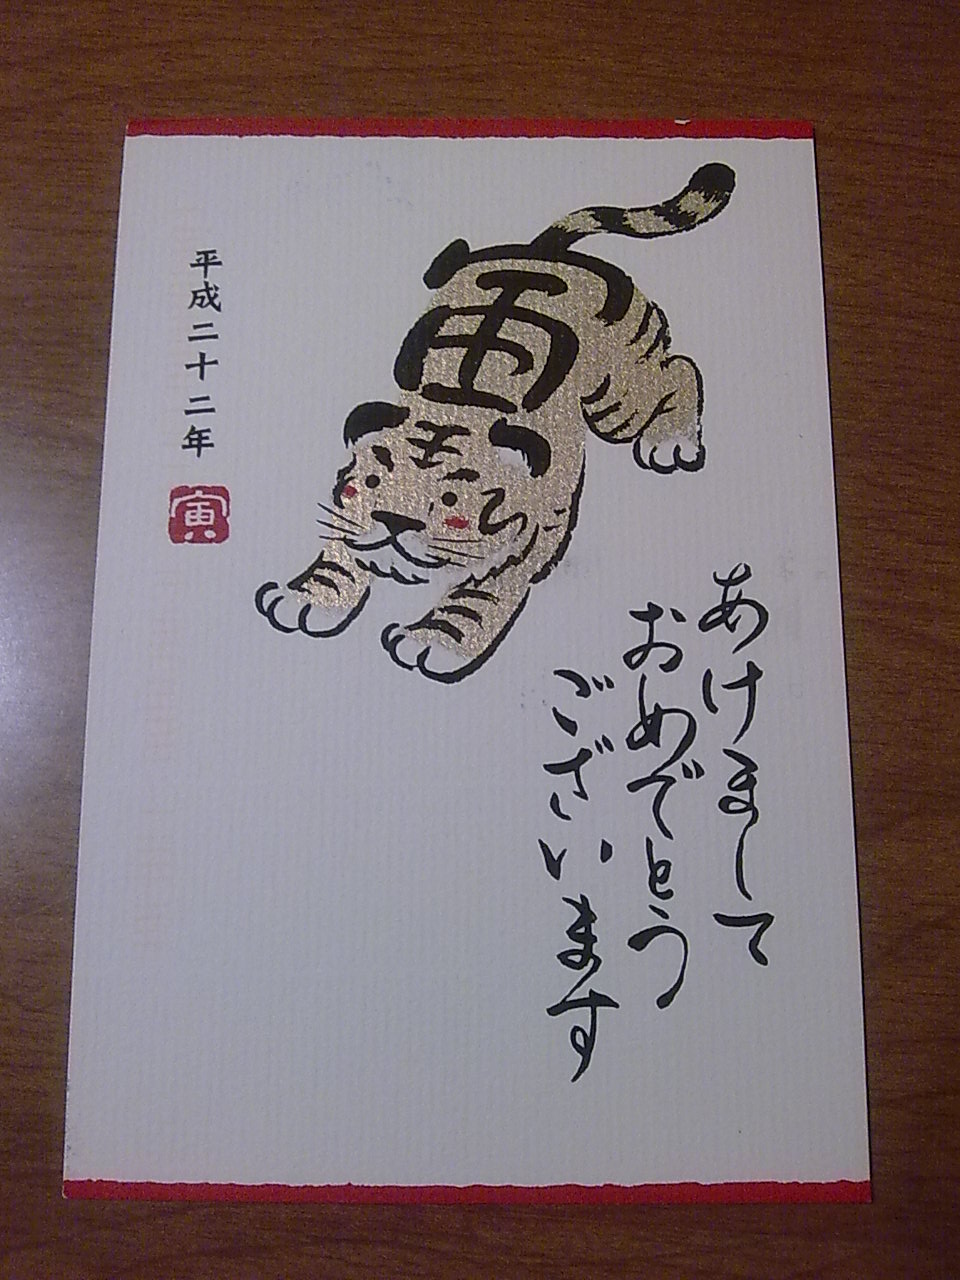 あけまして
おめでとう
ございます
寅
平成二十二年
寅